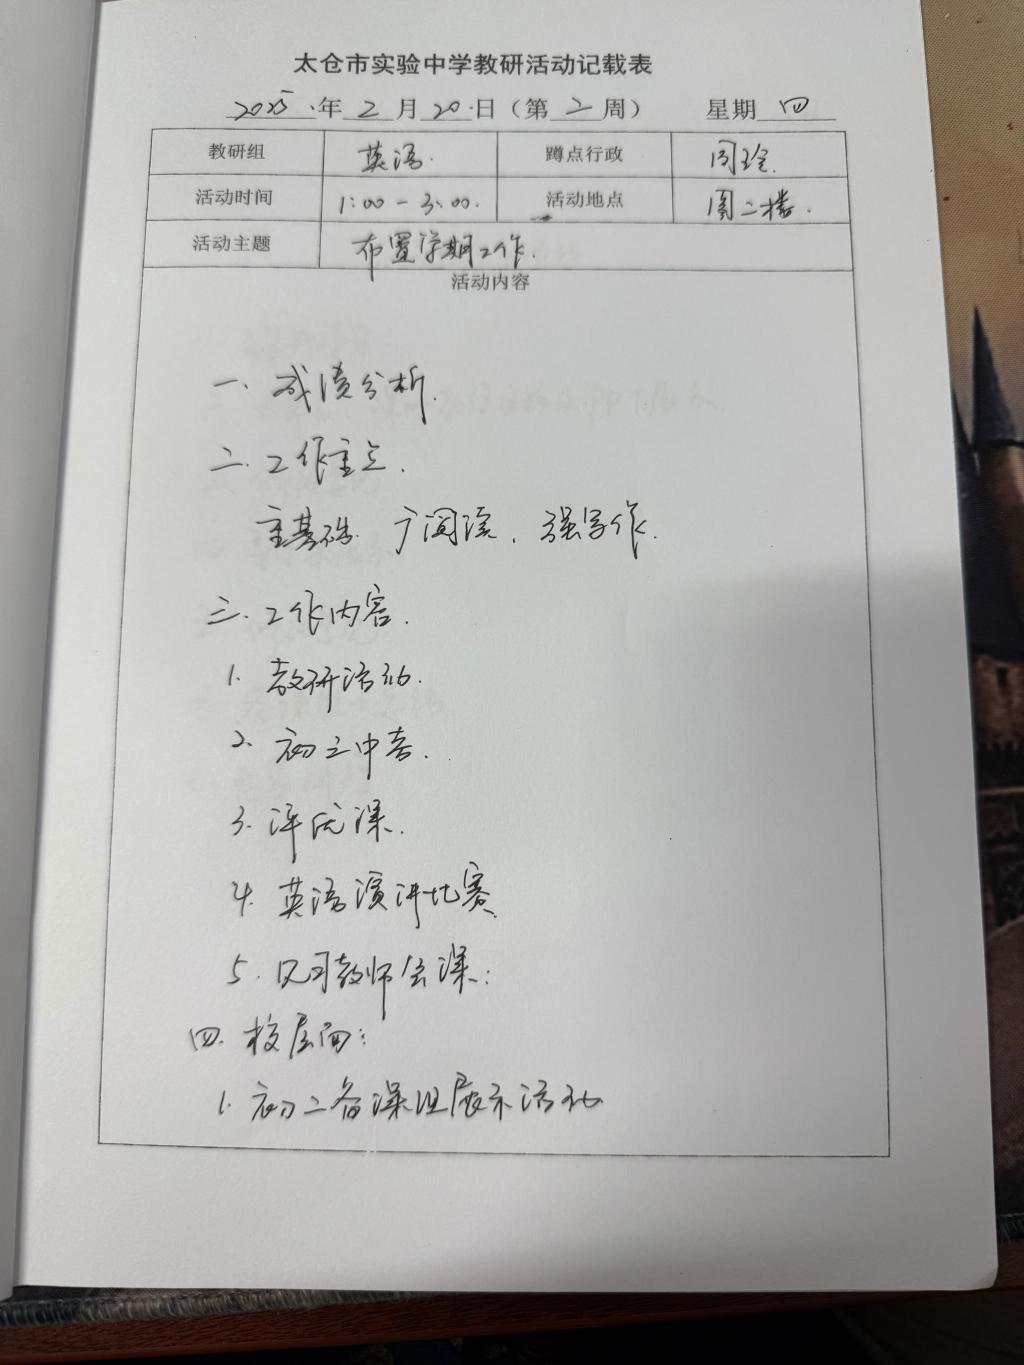 太仓市实验中学教研活动记载表
2025年2月20日（第2周） 星期四
教研组 英语. 蹲点行政 周
活动时间 1:00-3:00. 活动地点 图二楼.
活动主题 布置学期工作.
活动内容
一. 成绩分析.
二. 工作重点.
重基础. 广阅读. 强写作.
三. 工作内容.
1. 教研活动.
2. 初三中考.
3. 评优课.
4. 英语演讲比赛
5. 见习教师会课:
四. 校层面:
1. 初二备课组展示活动